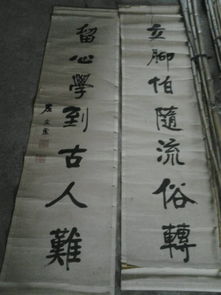 立腳怕隨流俗轉
留心學到古人難